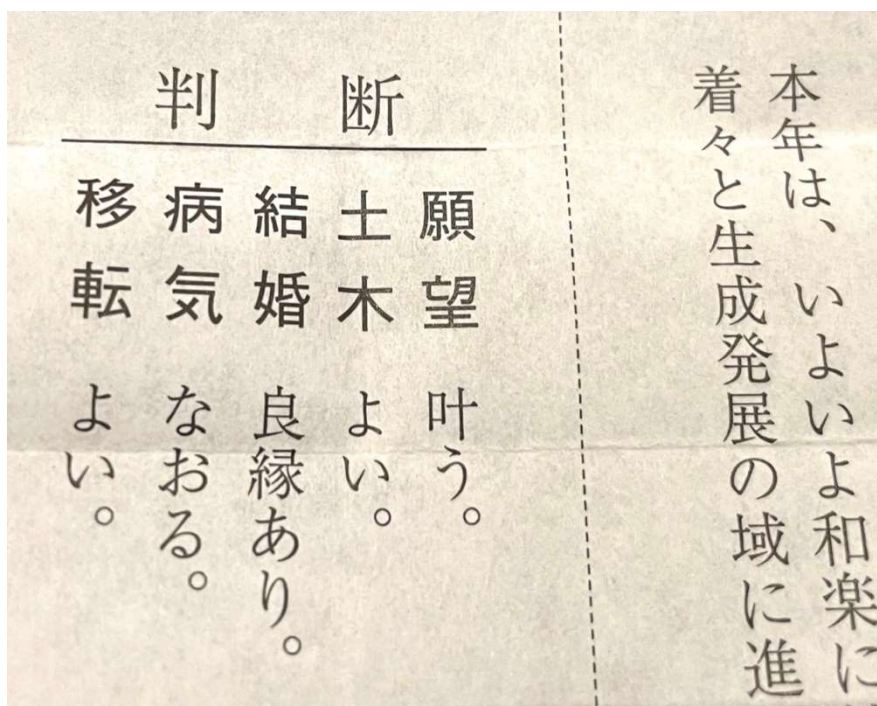 本年は、いよいよ和楽に
着々と生成発展の域に進
断判
願望 叶う。
土木 よい。
結婚 良縁あり。
病気 なおる。
移転 よい。